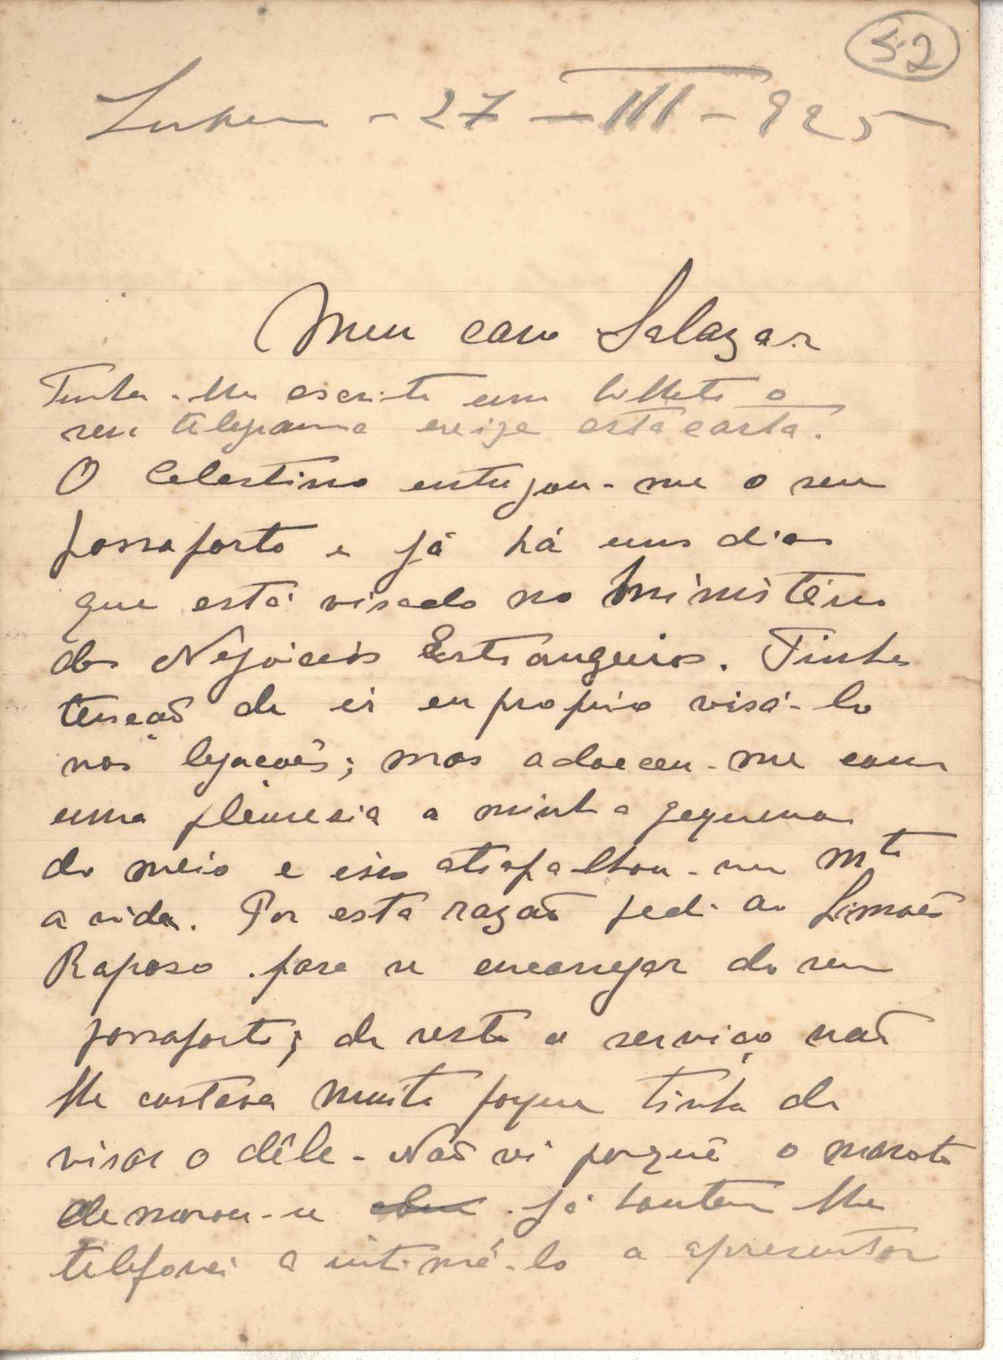 52
Lisboa - 27 - III - 925
Meu caro Salazar
Tinha-lhe escrito um bilhete o
seu telegrama exige esta carta.
O Celestino entregou-me o seu
passaporte e já há uns dias
que está visado no Ministério
dos Negócios Estrangeiros. Tinha
tenção de ir eu proprio visá-lo
nas legações; mas adoeceu-me com
uma pleuresia a minha pequena
do meio e isso atrapalhou-me Mto
a vida. Por esta razão pedi ao Simões
Raposo para se encarregar do seu
passaporte; de resto o serviço não
lhe custava muito porque tinha de
visar o dêle - Não vi porquê o maroto
demorou-se já hontem lhe
telefonei a intimá-lo a apresentar